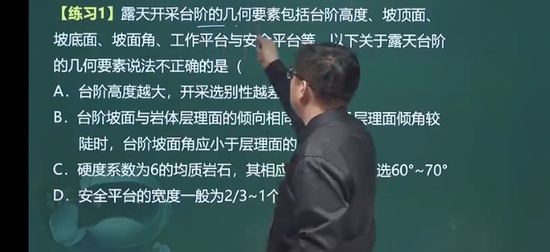 【练习1】露天开采台阶的几何要素包括台阶高度、坡顶面、
坡底面、坡面角、工作平台与安全平台等。以下关于露天台阶
的几何要素说法不正确的是（
A．台阶高度越大，开采选别性越差
B．台阶坡面与岩体层理面的倾向相同 层理面倾角较
陡时，台阶坡面角应小于层理面的
C．硬度系数为6的均质岩石，其相应 选60°~70°
D．安全平台的宽度一般为2/3~1个